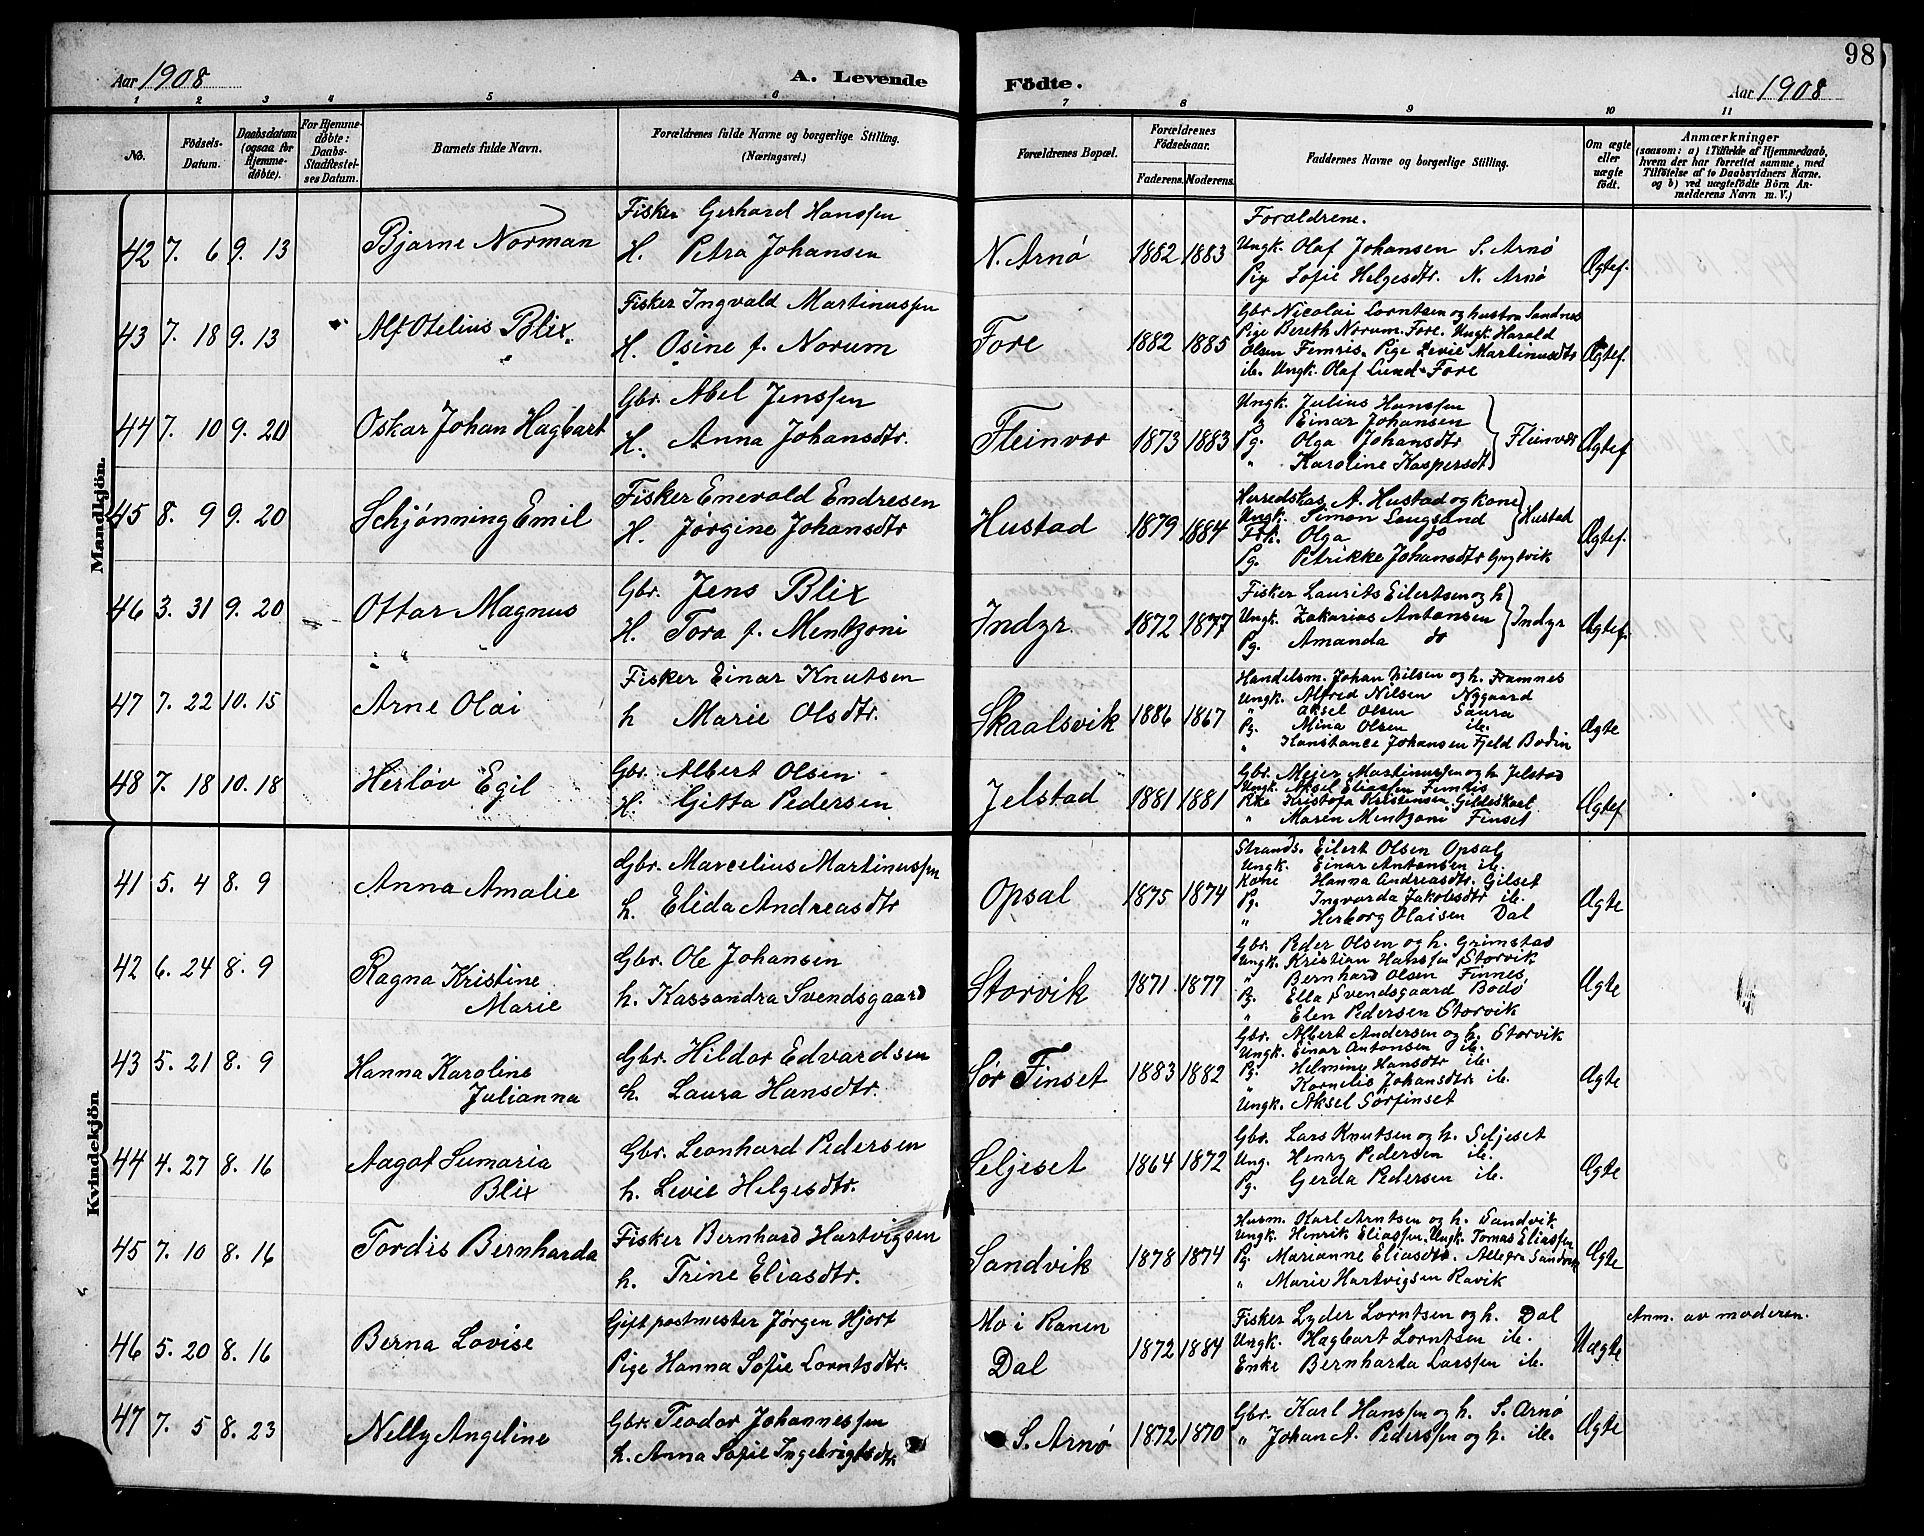 98
Aar 1908 A. Levende Födte. Aar 1908
1 2 3 4 5 6 7 8 9 10 11
No. Födsels-Datum. Daabsdatum (ogsaa for Hjemme-döbte). For Hjemme-döbte: Daabs-Stadfæstel-ses Datum. Barnets fulde Navn. Forældrenes fulde Navne og borgerlige Stilling. (Næringsvei.) Forældrenes Bopæl. Forældrenes Födselsaar. Faderens. Moderens. Faddernes Navne og borgerlige Stilling. Om ægte eller uægte født. Anmærkninger (saasom: a) i Tilfælde af Hjemmedaab, hvem der har forrettet samme, med Tilföielse af to Daabsvidners Navne. og b) ved uægtefödte Börn An-melderens Navn m. V.)
Mandkjön.
42 7. 6 9. 13 Bjarne Norman
Fisker Gerhard Hanssen
H. Petra Johansen
N. Arnø 1882 1883
Forældrene.
Ungk. Olaf Johansen S. Arnø
Pige Sofie Helgesdtr. N. Arnø
Ægtef.
43 7. 18 9. 13 Alf Otelius Blix.
Fisker Ingvald Martinussen
H. Osine f. Norum
Fore 1882 1885
Gbr Nicolai Lorntsen og hustru Sandnes
Pige Bereth Norum. Fore. Ungk. Harald
Olsen Femris. Pige Levie Martinusdtr
ib. Ungk. Olaf Lund Fore
Ægtef.
44 7. 10 9. 20 Oskar Johan Hagbart
Gbr. Abel Jenssen
H. Anna Johansdtr.
Fleinvær 1873 1883
Ungk. Julius Hanssen
" Einar Johansen
Pg. Olga Johansdtr
" Karoline Kaspersdt
Fleinvær
Ægtef
45 8. 9 9. 20 Schjønning Emil
Fisker Enevold Endresen
H. Jørgine Johansdtr
Hustad 1879 1884
Herredskas. A. Hustad og kone
Ungk. Simon Langsand
Frk. Olga do
Hustad
Pg. Petrikke Johansdtr
Ægtef.
46 3. 31 9. 20 Ottar Magnus
Gbr. Jens Blix
H. Tora f. Mentzoni
Indyr 1872 1877
Fisker Laurits Eilertsen og h
Ungk. Zakarias Antonsen
Pg. Amanda do
Indyr
Ægtef.
47 7. 22 10. 15 Arne Olai
Fisker Einar Knutsen
h Marie Olsdtr.
Skaalsvik 1886 1867
Handelsm. Johan Nilsen og h. Framnes
Ungk. Alfred Nilsen Nygaard
" Aksel Olsen Saura
Pg. Mina Olsen ib.
" Konstance Johansen Fjeld Bodin
Ægte
48 7. 18 10. 18 Herløv Egil
Gbr. Albert Olsen
H. Gitta Pedersen
Jelstad 1881 1881
Gbr. Mejer Martinussen og h. Jelstad
Ungk. Aksel Eliassen Femris
Pike Kristofa Kristensen Gildeskaal
" Maren Mentzoni Finset
Ægtef
Kvindekjön
41 5. 4 8. 9 Anna Amalie
Gbr. Marcelius Martinussen
h. Elida Andreasdtr
Opsal 1875 1874
Strands. Eilert Olsen Opsal
Ungk. Einar Antonsen ib.
Kone Hanna Andreasdtr. Gilset
Pg. Ingvarda Jakobsdtr ib.
" Herborg Olaisen Dal
Ægte
42 6. 24 8. 9 Ragna Kristine
Marie
Gbr. Ole Johansen
h. Kassandra Svendsgaard
Storvik 1871 1877
Gbr. Peder Olsen og h. Grimstad
Ungk. Kristian Hanssen Storvik
" Bernhard Olsen Finnes
Pg. Ella Svendsgaard Bodø
" Elen Pedersen Storvik
Ægte
43 5. 21 8. 9 Hanna Karoline
Julianna
Gbr. Hildor Edvardsen
h. Laura Hansdtr.
Sør Finset 1883 1882
Gbr. Albert Andersen og h. Storvik
Ungk. Einar Antonsen ib.
Pg. Helmine Hansdtr ib.
" Kornelis Johansdtr ib.
Ungk. Aksel Sørfinset
Ægte
44 4. 27 8. 16 Aagot Sumaria
Blix
Gbr. Leonhard Pedersen
h. Levie Helgesdtr.
Seljeset 1864 1872
Gbr. Lars Knutsen og h. Seljeset
Ung. Henry Pedersen ib.
Pg. Gerda Pedersen ib.
Ægte
45 7. 10 8. 16 Tordis Bernharda
Fisker Bernhard Hartvigsen
h. Trine Eliasdtr.
Sandvik 1878 1874
Husm. Karl Arntsen og h. Sandvik
Ungk. Henrik Eliassen, Ungk. Tomas Eliassen
Pg. Marianne Eliasdtr. Alle fra Sandvik
" Marie Hartvigsen Ravik
Ægte
46 5. 20 8. 16 Berna Lovise
Gift postmester Jørgen Hjort
Pige Hanna Sofie Lorntsdtr.
Mo i Ranen
Dal
1872 1884
Fisker Lyder Lorntsen og h. Dal
Ungk. Hagbart Lorntsen ib.
Enke Bernharda Larssen ib.
Uægte
Anm. av moderen.
47 7. 5 8. 23 Nelly Angeline
Gbr. Teodor Johannessen
h. Anna Sofie Ingebrigtsdtr.
S. Arnø 1872 1870
Gbr. Karl Hanssen og h. S. Arnø
" Johan A. Pederssen og h. ib.
Ægte